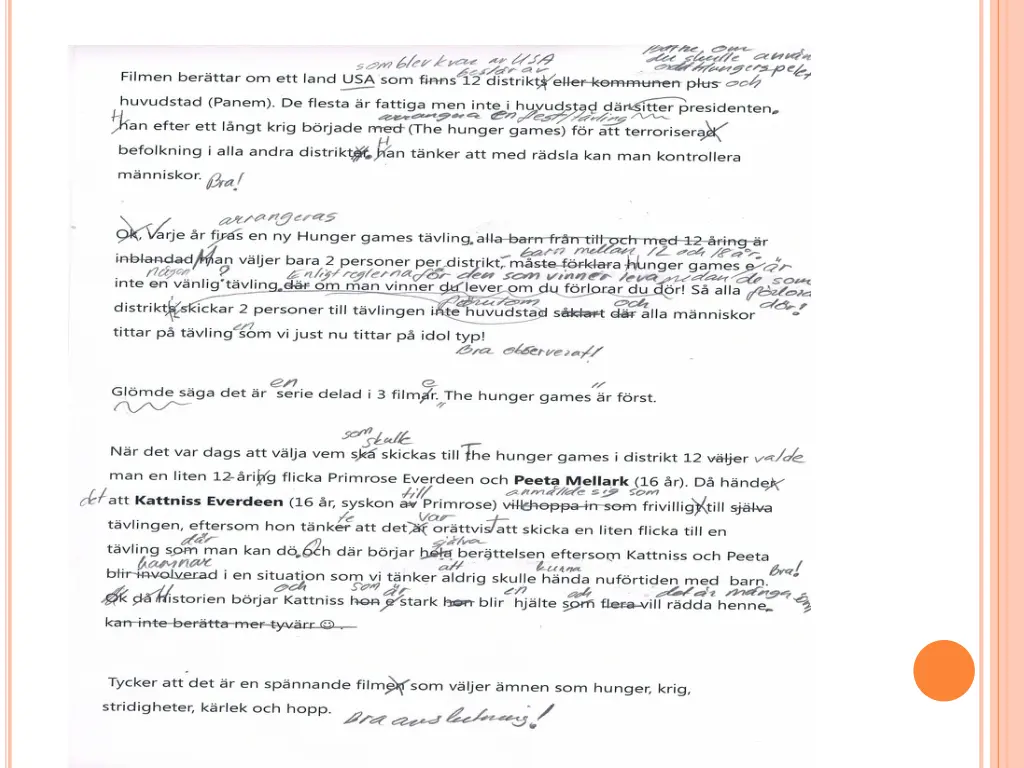 som blev kvar av USA
Barne om
du skulle använ
består av
Filmen berättar om ett land USA som finns 12 distrikts eller kommunen plus och
huvudstad (Panem). De flesta är fattiga men inte i huvudstad där sitter presidenten.
arrangera en fest/tävling
H
han efter ett långt krig började med (The hunger games) för att terroriserad
befolkning i alla andra distrikter. han tänker att med rädsla kan man kontrollera
H
människor. Bra!
arrangeras
Ok, Varje år firas en ny Hunger games tävling, alla barn från till och med 12 åring är
barn mellan 12 och 18 år.
inblandad, Man väljer bara 2 personer per distrikt, måste förklara hunger games e är
någon ? Enligt reglerna får den som vinner leva medan de som
inte en vänlig tävling där om man vinner du lever om du förlorar du dör! Så alla förlora
förutom och dör!
distrikts skickar 2 personer till tävlingen inte huvudstad såklart där alla människor
tittar på tävling en som vi just nu tittar på idol typ!
Bra observerat!
en e "
Glömde säga det är serie delad i 3 filmar. The hunger games är först.
som
skulle
När det var dags att välja vem ska skickas till The hunger games i distrikt 12 väljer valde
man en liten 12-åring flicka Primrose Everdeen och Peeta Mellark (16 år). Då händer
till anmällde sig som
det att Kattniss Everdeen (16 år, syskon av Primrose) vill hoppa in som frivilligt till själva
te var t
tävlingen, eftersom hon tänker att det är orättvis att skicka en liten flicka till en
där själva
tävling som man kan dö. Och där börjar hela berättelsen eftersom Kattniss och Peeta
hamnar att kunna Bra!
blir involverad i en situation som vi tänker aldrig skulle hända nuförtiden med barn.
och som är en och det är många
Ok då historien börjar Kattniss hon e stark hon blir hjälte som flera vill rädda henne.
kan inte berätta mer tyvärr ☺ .
Tycker att det är en spännande filmen som väljer ämnen som hunger, krig,
stridigheter, kärlek och hopp. Bra avslutning!